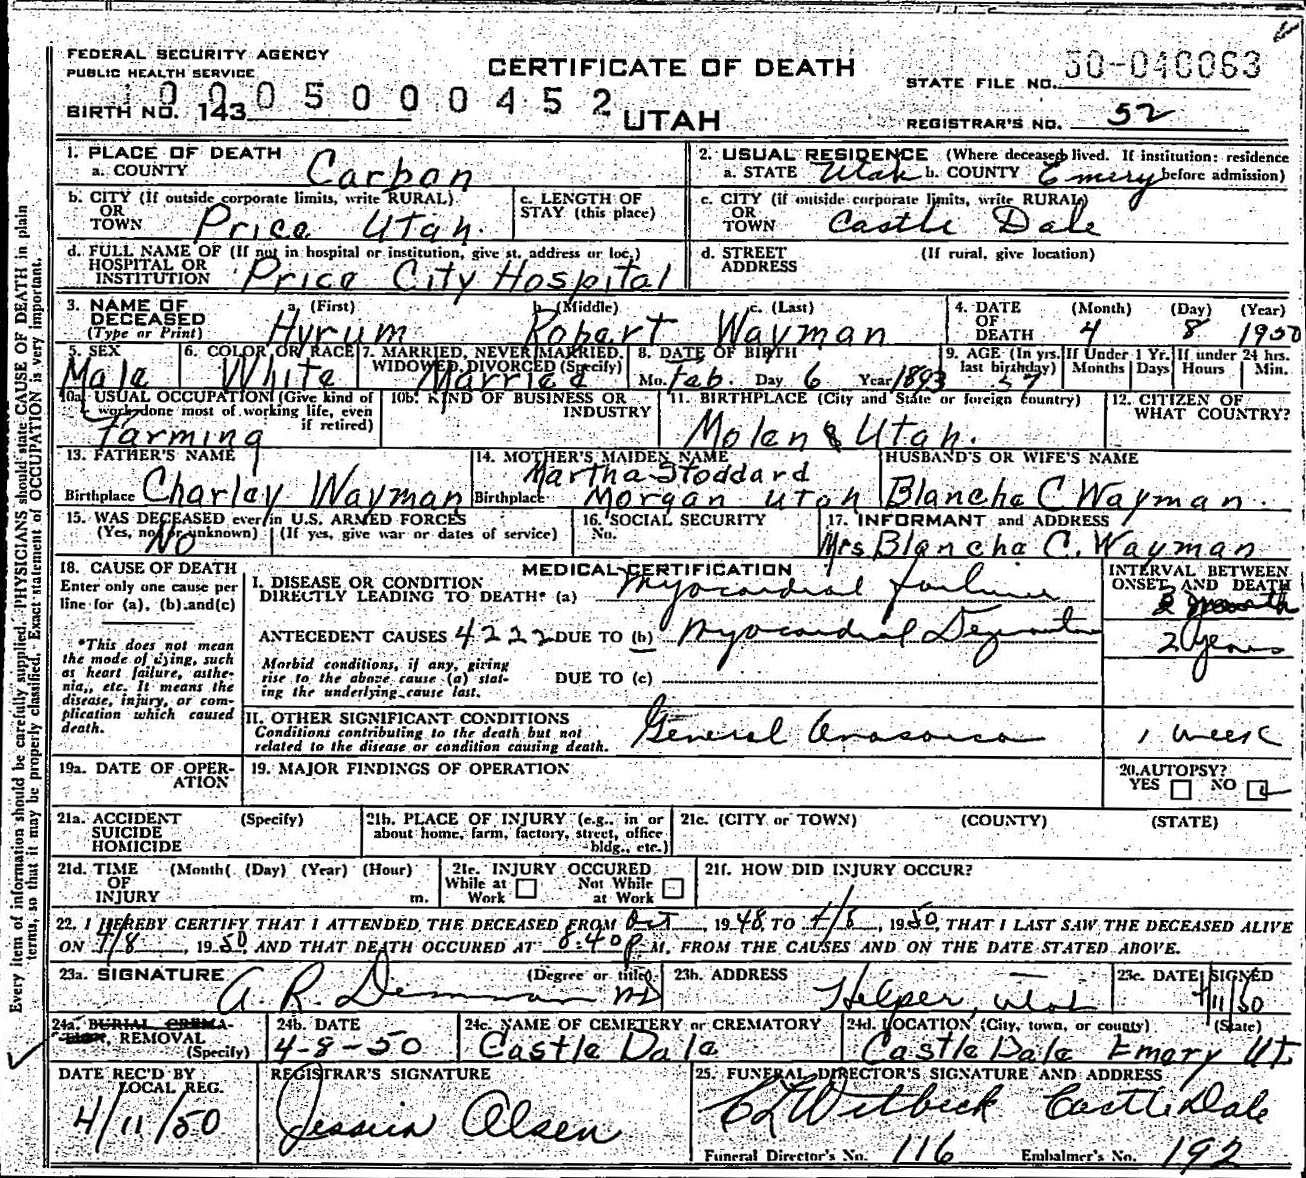 FEDERAL SECURITY AGENCY
PUBLIC HEALTH SERVICE
CERTIFICATE OF DEATH
STATE FILE NO. 50-040063
1 0 0 0 5 0 0 0 0 4 5 2
BIRTH NO. 143
UTAH
REGISTRAR'S NO. 52
1. PLACE OF DEATH
a. COUNTY Carbon
2. USUAL RESIDENCE (Where deceased lived. If institution: residence before admission)
a. STATE Utah b. COUNTY Emery
b. CITY (If outside corporate limits, write RURAL)
OR
TOWN Price Utah.
c. LENGTH OF
STAY (this place)
c. CITY (if outside corporate limits, write RURAL)
OR
TOWN Castle Dale
d. FULL NAME OF (If not in hospital or institution, give st. address or loc.)
HOSPITAL OR
INSTITUTION Price City Hospital
d. STREET (If rural, give location)
ADDRESS
3. NAME OF
DECEASED
(Type or Print)
a. (First) b. (Middle) c. (Last)
Hyrum Robart Wayman
4. DATE
OF
DEATH
(Month) (Day) (Year)
4 8 1950
5. SEX
Male
6. COLOR OR RACE
White
7. MARRIED, NEVER MARRIED,
WIDOWED, DIVORCED (Specify)
Married
8. DATE OF BIRTH
Mo. Feb. Day 6 Year 1893
9. AGE (In yrs. last birthday)
57
If Under 1 Yr.
Months Days
If under 24 hrs.
Hours Min.
10a. USUAL OCCUPATION (Give kind of
work done most of working life, even
if retired)
Farming
10b. KIND OF BUSINESS OR
INDUSTRY
11. BIRTHPLACE (City and State or foreign country)
Molen Utah.
12. CITIZEN OF
WHAT COUNTRY?
13. FATHER'S NAME
Birthplace Charley Wayman
14. MOTHER'S MAIDEN NAME
Martha Stoddard
Birthplace Morgan Utah
HUSBAND'S OR WIFE'S NAME
Blancha C Wayman.
15. WAS DECEASED ever in U.S. ARMED FORCES
(Yes, no or unknown) (If yes, give war or dates of service)
No
16. SOCIAL SECURITY
No.
17. INFORMANT and ADDRESS
Mrs Blancha C. Wayman
18. CAUSE OF DEATH
Enter only one cause per
line for (a), (b).and(c)
*This does not mean
the mode of dying, such
as heart failure, asthe-
nia,, etc. It means the
disease, injury, or com-
plication which caused
death.
MEDICAL CERTIFICATION
I. DISEASE OR CONDITION
DIRECTLY LEADING TO DEATH* (a) Myocardial failure
INTERVAL BETWEEN
ONSET AND DEATH
ANTECEDENT CAUSES 4222 DUE TO (b) Myocardial
2 years
Morbid conditions, if any, giving
rise to the above cause (a) stat-
ing the underlying cause last.
DUE TO (c)
II. OTHER SIGNIFICANT CONDITIONS
Conditions contributing to the death but not
related to the disease or condition causing death.
General Anasarca
1 week
19a. DATE OF OPER-
ATION
19. MAJOR FINDINGS OF OPERATION
20. AUTOPSY?
YES NO
21a. ACCIDENT (Specify)
SUICIDE
HOMICIDE
21b. PLACE OF INJURY (e.g., in or
about home, farm, factory, street, office
bldg., etc.)
21c. (CITY or TOWN) (COUNTY) (STATE)
21d. TIME (Month( (Day) (Year) (Hour)
OF
INJURY m.
21e. INJURY OCCURED
While at Work Not While at Work
21f. HOW DID INJURY OCCUR?
22. I HEREBY CERTIFY THAT I ATTENDED THE DECEASED FROM Oct, 1948, TO 4/8, 1950, THAT I LAST SAW THE DECEASED ALIVE
ON 4/8, 1950, AND THAT DEATH OCCURED AT 8:40 P M. FROM THE CAUSES AND ON THE DATE STATED ABOVE.
23a. SIGNATURE (Degree or title)
A. R. Demman MD
23b. ADDRESS
Helper, Utah
23c. DATE SIGNED
4/11/50
24a. BURIAL CREMA-
TION, REMOVAL
(Specify)
24b. DATE
4-8-50
24c. NAME OF CEMETERY or CREMATORY
Castle Dale
24d. LOCATION (City, town, or county) (State)
Castle Dale Emery Ut.
DATE REC'D BY
LOCAL REG.
4/11/50
REGISTRAR'S SIGNATURE
Jessica Olsen
25. FUNERAL DIRECTOR'S SIGNATURE AND ADDRESS
CL Witbeck Castle Dale
Funeral Director's No. 116 Embalmer's No. 192
Every item of information should be carefully supplied. PHYSICIANS should state CAUSE OF DEATH in plain
terms, so that it may be properly classified. Exact statement of OCCUPATION is very important.